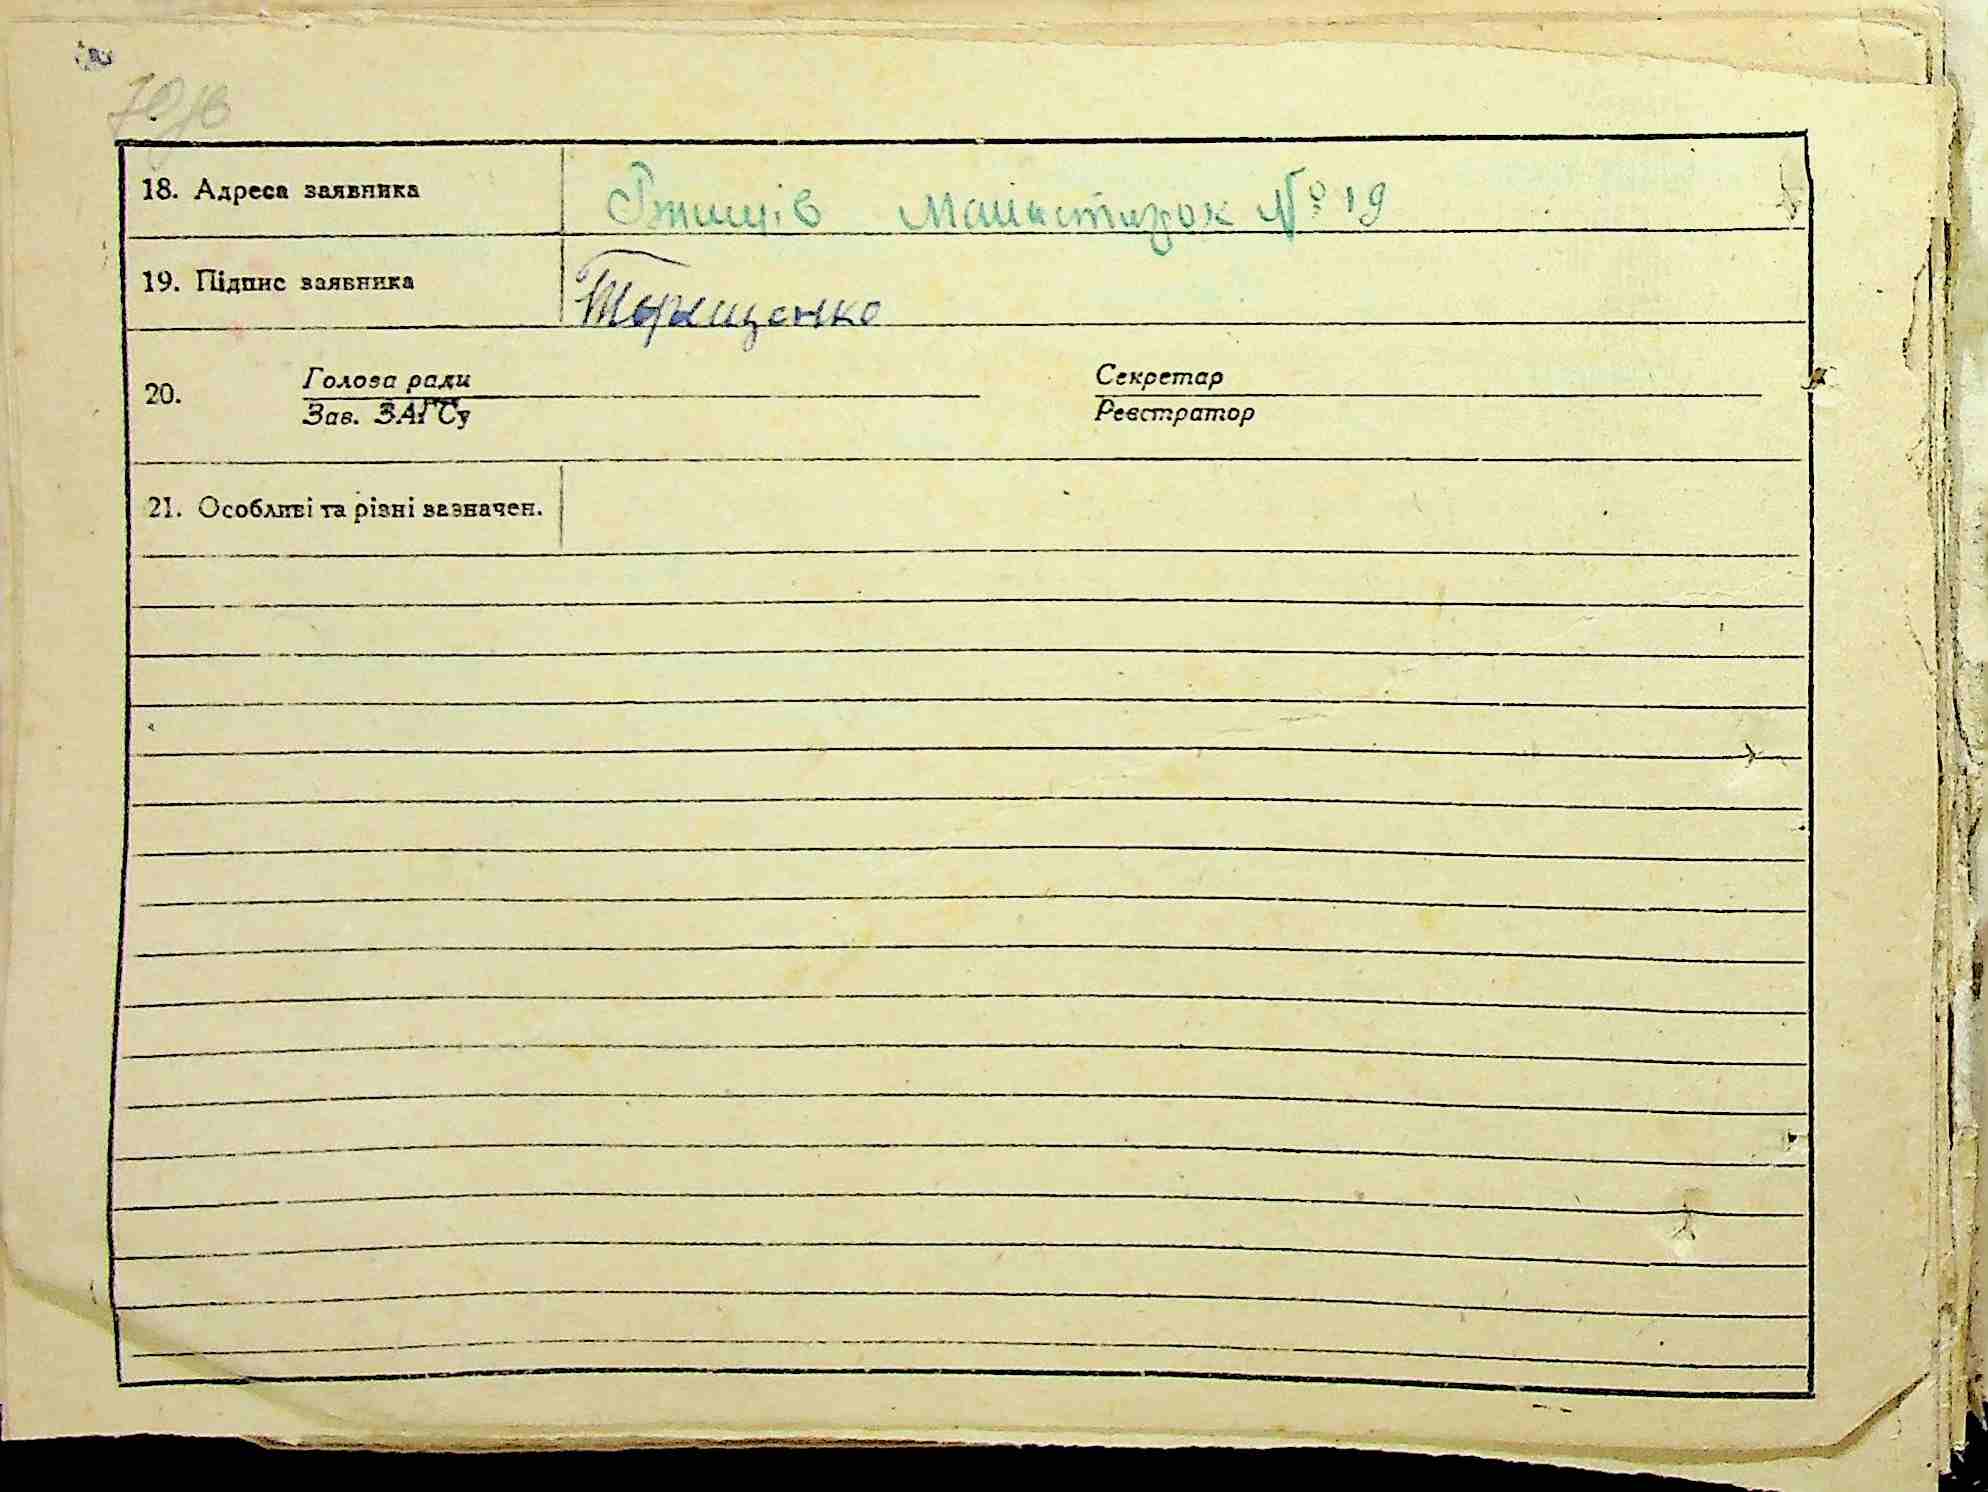 70зв
18. Адреса заявника Ржищів Манастирок № 19
19. Підпис заявника Терещенко
20. Голова ради Секретар
Зав. ЗАГСу Реєстратор
21. Особливі та різні зазначен.